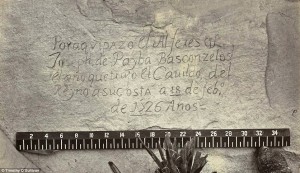 Por aqui pazo el Alferes Dn
Joseph de Payba Basconzelos
el año que trujo el Cavildo del
Reyno a su costa a 18 de feb
de 1726 Años
2 4 6 8 10 12 14 16 18 20 22 24 26 28 30 32 34
© Timothy O Sullivan